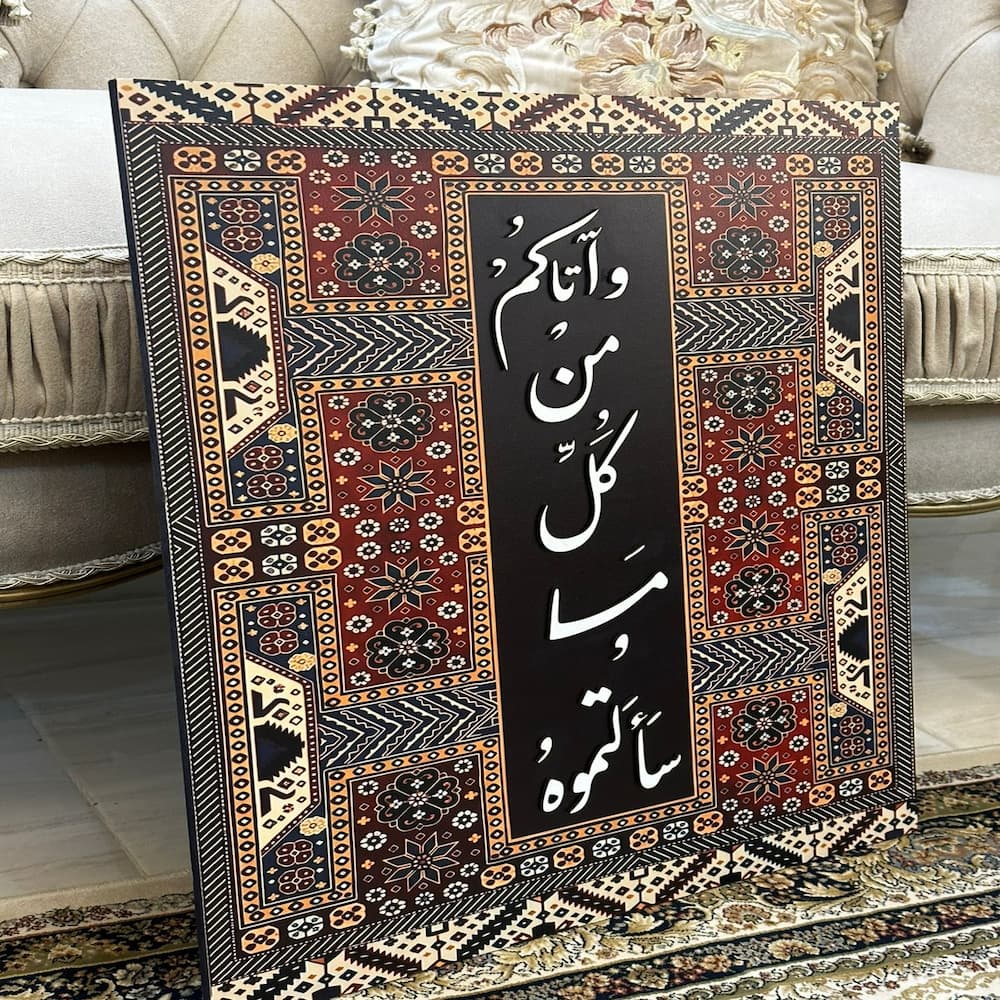 وآتاكمُ
منُ
كُلِّ
مَا
سَأَلتموهُ